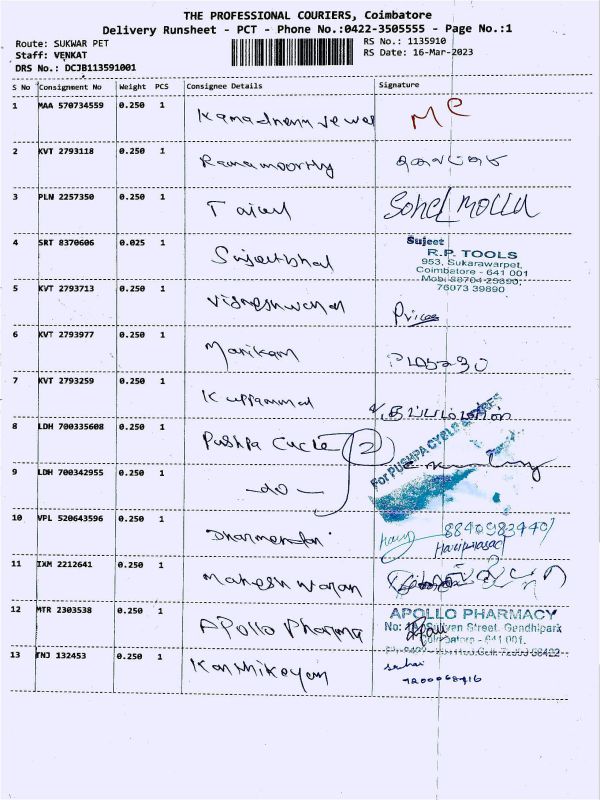 THE PROFESSIONAL COURIERS, Coimbatore
Delivery Runsheet - PCT - Phone No.:0422-3505555 - Page No.:1
Route: SUKWAR PET
RS No.: 1135910
Staff: VENKAT
RS Date: 16-Mar-2023
DRS No.: DCJB113591001
S No Consignment No Weight PCS Consignee Details Signature
1 MAA 570734559 0.250 1 Kamadhenu Jewel
2 KVT 2793118 0.250 1 Ramamoorthy
3 PLN 2257350 0.250 1 Sohel Molla
4 SRT 8370606 0.025 1 Sujeetbhai
Sujeet
R.P. TOOLS
953, Sukarawarpet,
Coimbatore - 641 001
Mob: 88704 29890,
76073 39890
5 KVT 2793713 0.250 1 Vigneshwaran
6 KVT 2793977 0.250 1 Manikam
7 KVT 2793259 0.250 1 Kuppammal
8 LDH 700335608 0.250 1 Pushpa Cycle 2
For PUSHPA CYCLE STORES
9 LDH 700342955 0.250 1 - do -
10 VPL 520643596 0.250 1 Dharmendar
Hariprasad
11 IXM 2212641 0.250 1 Maheshwaran
12 MTR 2303538 0.250 1 Apollo Pharma
APOLLO PHARMACY
Street, Gandhipark
Coimbatore - 641 001.
13 TNJ 132453 0.250 1 Karthikeyan